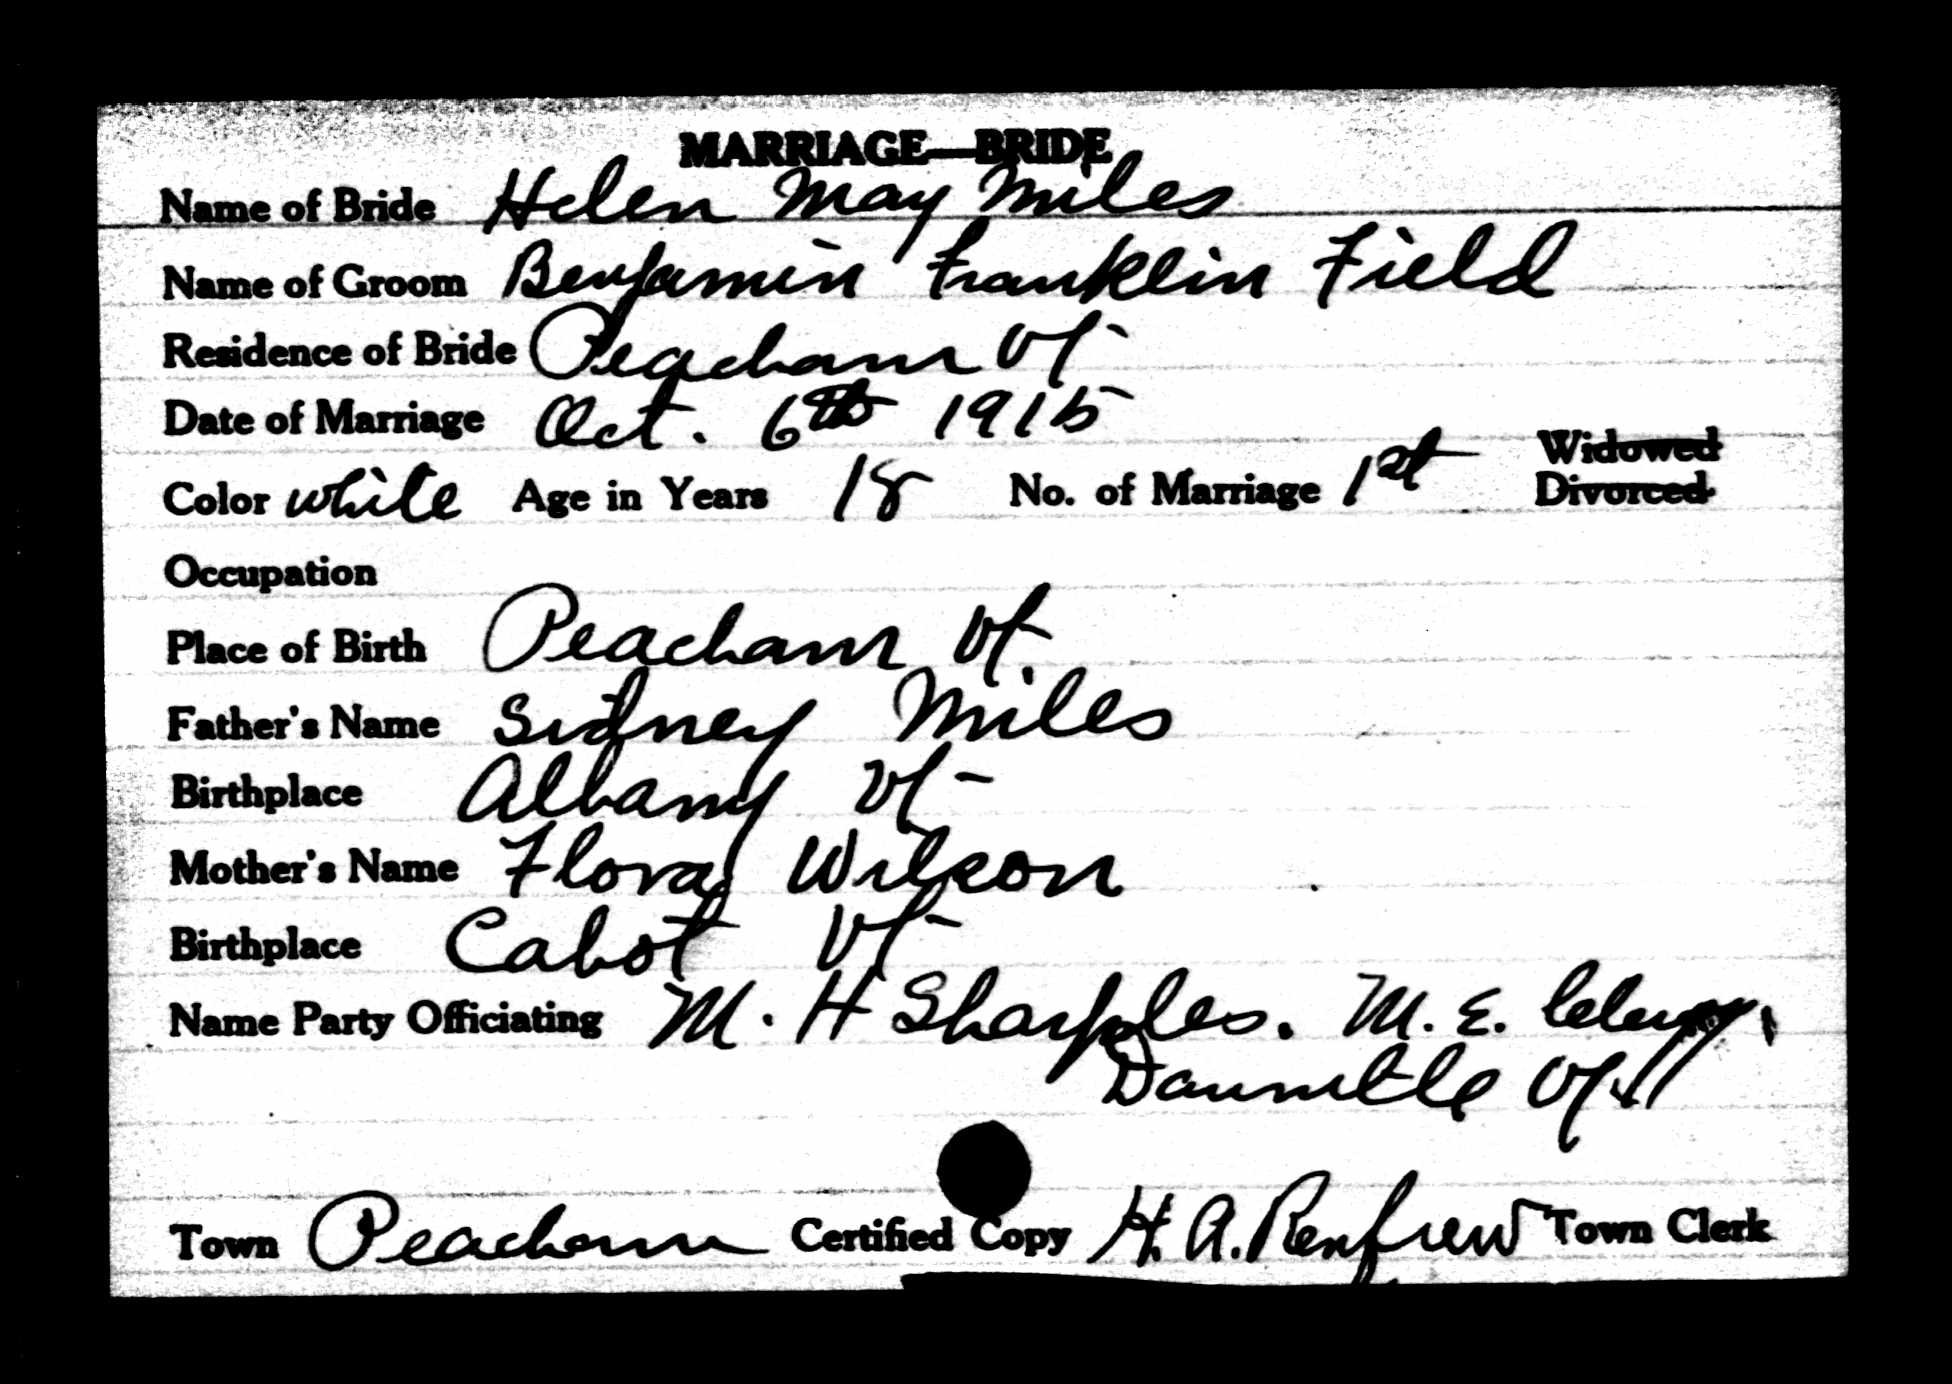 MARRIAGE—BRIDE
Name of Bride Helen May Miles
Name of Groom Benjamin Franklin Field
Residence of Bride Peacham Vt
Date of Marriage Oct. 6th 1915
Color white Age in Years 18 No. of Marriage 1st Widowed Divorced
Occupation
Place of Birth Peacham Vt.
Father's Name Sidney Miles
Birthplace Albany Vt
Mother's Name Flora Wilson
Birthplace Cabot Vt
Name Party Officiating M. H Sharples. M. E. Clergy.
Danville Vt
Town Peacham Certified Copy H. A. Renfrew Town Clerk